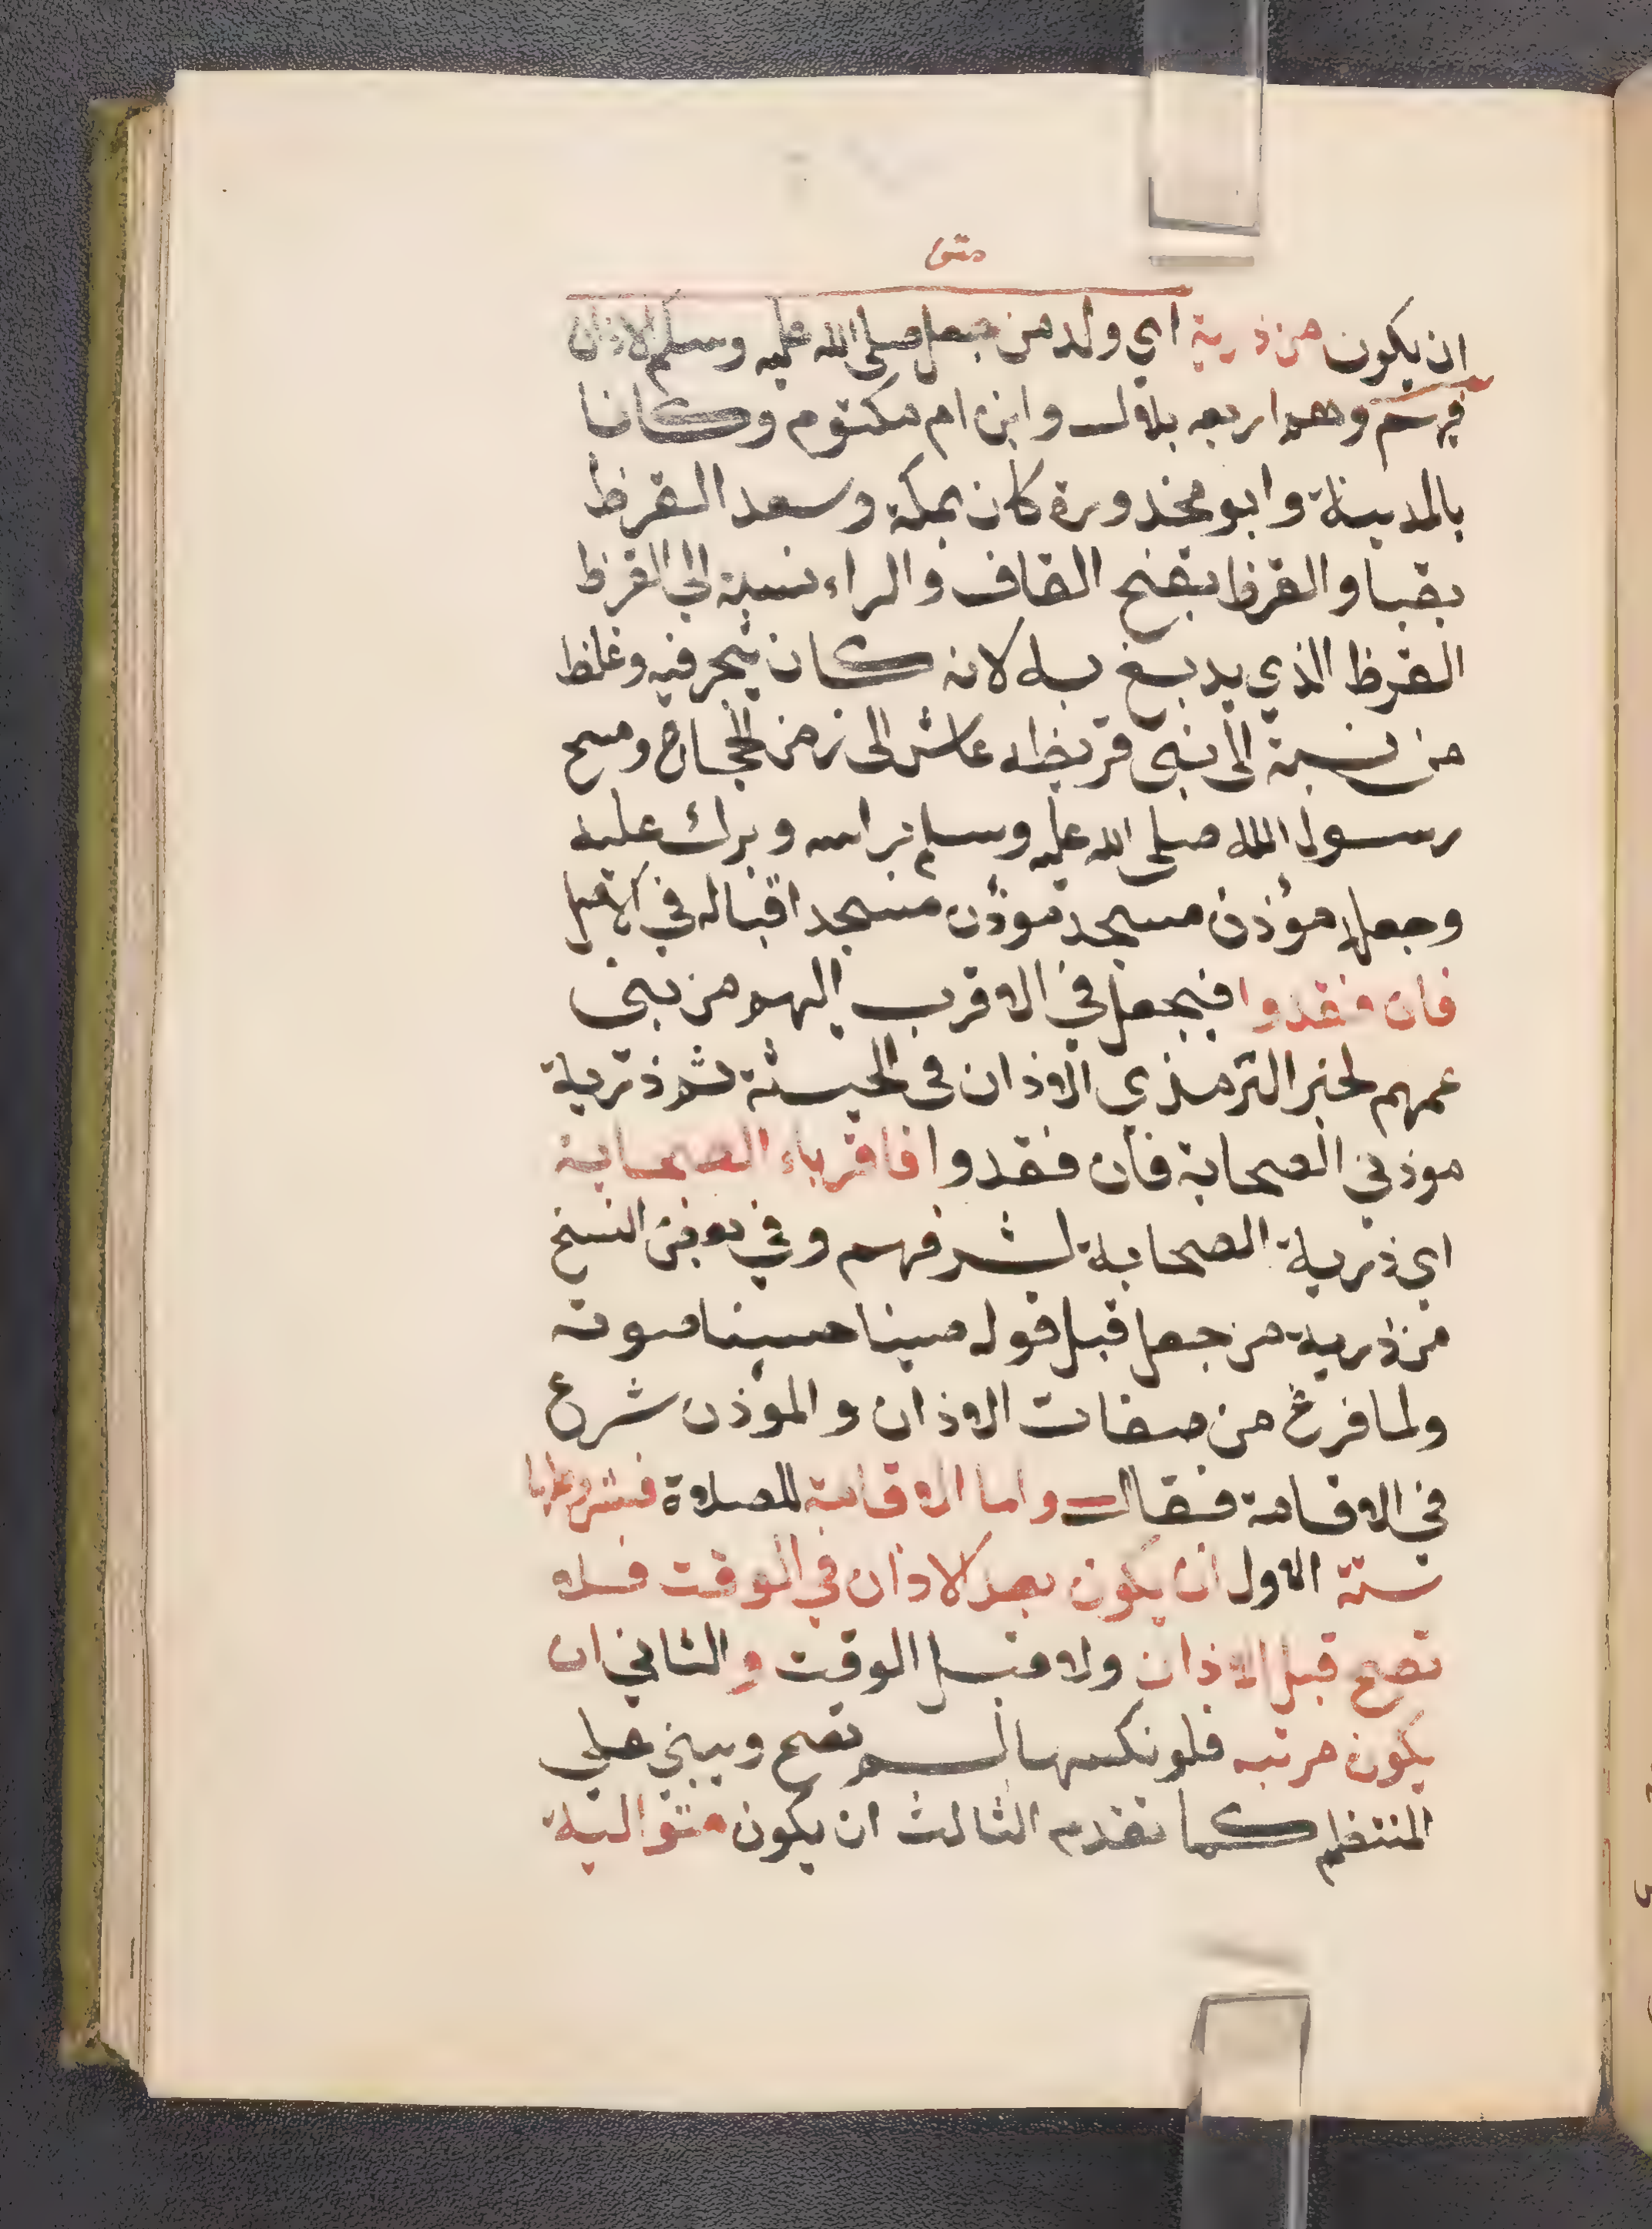 متن
ان يكون من ذرية اي ولد من جعل صلى الله عليه وسلم الاذان
فيهم وهم اربعه بلال وابن ام مكتوم وكانا
بالمدينة وابو محذورة كان بمكة وسعد القرظ
بقبا والقرظ بفتح القاف والراء نسبة الى القرظ
القرظ الذي يدبغ به لانه كان يتجر فيه وغلط
من نسبة الى بني قريظه عاش الى زمن الحجاج ومسح
رسول الله صلى الله عليه وسلم براسه وبرك عليه
وجعله مؤذن مسجد مؤذن مسجد اقباله في
فان فقدوا فيجعل في الاقرب اليهم من بني
عمهم لخبر الترمذي الاذان في الحبشة ثم ذرية
موذني الصحابة فان فقدوا فاقرباء الصحابة
اي ذرية الصحابة لشرفهم وفي بعض النسخ
من ذرية من جعل قبل قوله صيتا حسينا صوته
ولما فرغ من صفات الاذان والموذن شرع
في الاقامة فقال واما الاقامة للصلاة فشروطها
ستة الاول ان يكون بعد الاذان في الوقت فلا
تصح قبل الاذان ولا قبل الوقت والثاني ان
يكون مرتبه فلو نكسها لم تصح ويبني على
المنتظم كما تقدم الثالث ان يكون متوالية